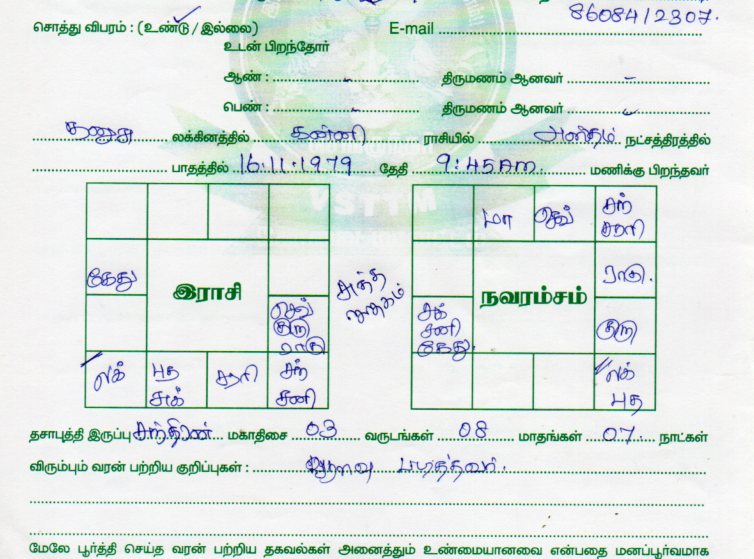 8608412307.
சொத்து விபரம் : (உண்டு / இல்லை) E-mail
உடன் பிறந்தோர்
ஆண் : - திருமணம் ஆனவர் -
பெண் : - திருமணம் ஆனவர் -
தனுசு லக்கினத்தில் கன்னி ராசியில் அஸ்தம் நட்சத்திரத்தில்
பாதத்தில் 16.11.1979 தேதி 9:45Am. மணிக்கு பிறந்தவர்
மா செவ் சந் சூரி
கேது இராசி நவரம்சம் ராகு.
செவ் குரு ராகு சுக் சனி கேது. குரு
லக் புத சுக் சூரி சந் சனி லக் புத
தசாபுத்தி இருப்பு சந்திரன் மகாதிசை 03 வருடங்கள் 08 மாதங்கள் 07 நாட்கள்
விரும்பும் வரன் பற்றிய குறிப்புகள் : ஓரளவு படித்தவர்.
மேலே பூர்த்தி செய்த வரன் பற்றிய தகவல்கள் அனைத்தும் உண்மையானவை என்பதை மனப்பூர்வமாக